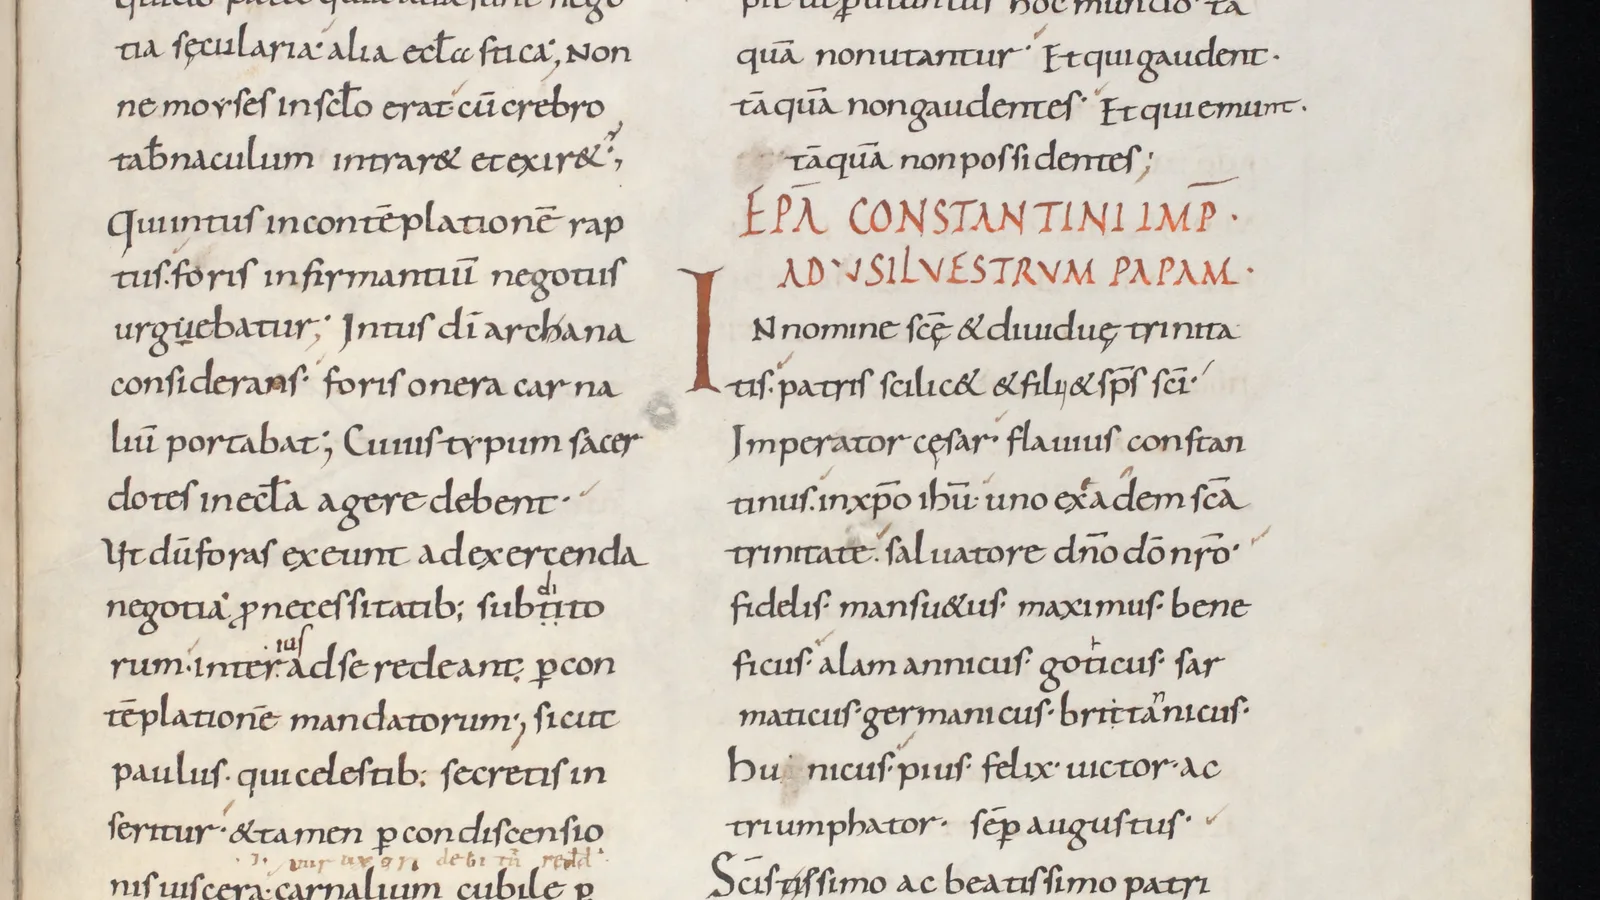 tia sęcularia· alia eccl̄astica; Non
ne moyses in scl̄o erat· cū crebro
tab̄naculum intrar& et exir&;
Qui intus in contēplationē rap
tus· foris infirmantiū negotiis
urguebatur; Intus dī archana
considerans· foris onera carna
liū portabat; Cuius typum sacer
dotes in eccl̄a agere debent·
Ut dū foras exeunt ad exercenda
negotia· ꝓ necessitatib; subtito
di
rum· inter adse redeant· ꝑ con
ius
tēplationē mandatorum; sicut
paulus· qui celestib; secretis in
seritur· & tamen ꝑ condiscensio
uxori debitū redd
nis uiscera· carnalium cubile ꝑ
quā non utantur· Et qui gaudent·
tāquā non gaudentes· Et qui emunt·
tāquā non possidentes;
EPĀ CONSTANTINI IMP̄·
AD SILVESTRVM PAPAM·
IN nomine scę̄ & diuiduę trinita
tis· patris scilic& & filii & sp̄s scī·
Imperator cęsar· flauius constan
tinus· in xp̄o ihū· uno ex eadem scā
trinitate· saluatore dn̄o dō nr̄o·
fidelis· mansu&us· maximus· bene
ficus· alamannicus· goticus· sar
maticus· germanicus· brittannicus·
hunicus· pius· felix· uictor· ac
triumphator· sēp augustus·
Scīssimo ac beatissimo patri